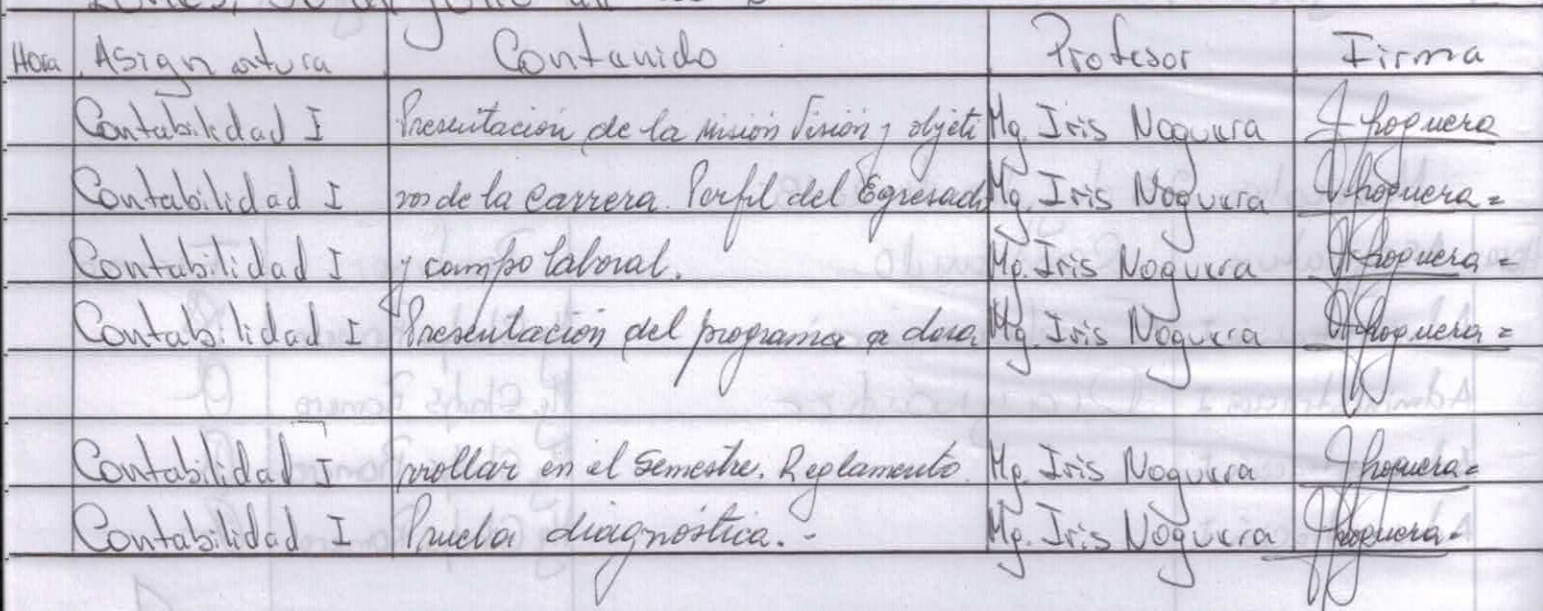 Lunes, 30 de julio de
Hora Asignatura Contenido Profesor Firma
Contabilidad I Presentación de la misión Visión y objeti Mg. Iris Noguera INoguera
Contabilidad I vos de la Carrera. Perfil del Egresado Mg. Iris Noguera INoguera
Contabilidad I y campo laboral. Mg. Iris Noguera INoguera
Contabilidad I Presentación del programa a desa Mg. Iris Noguera INoguera
Contabilidad I rrollar en el Semestre. Reglamento. Mg. Iris Noguera INoguera
Contabilidad I Prueba diagnóstica.- Mg. Iris Noguera INoguera